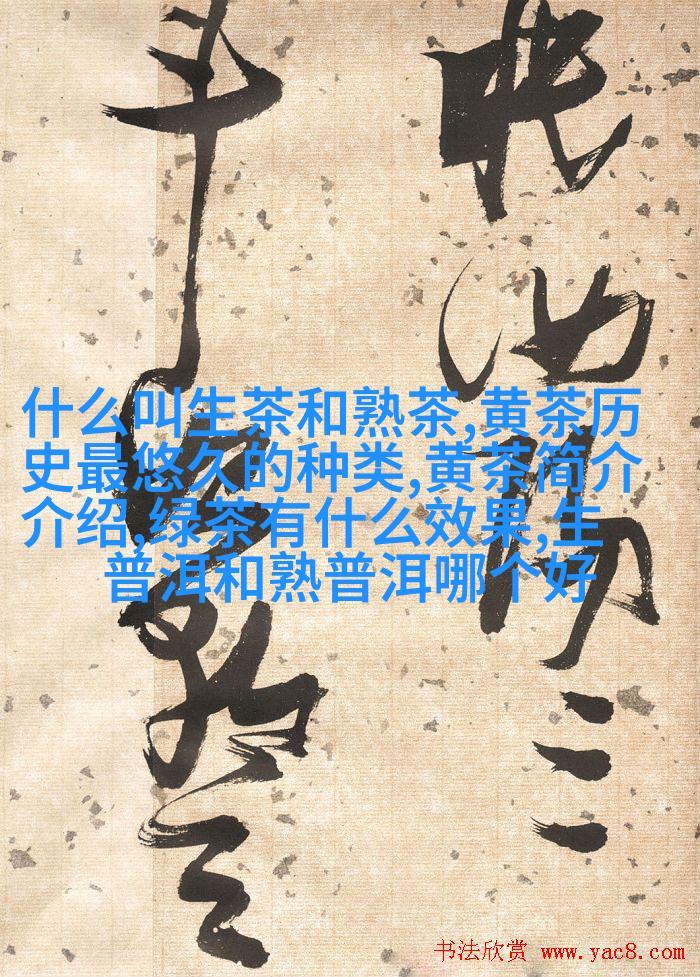 眠汝陽三
斗始朝天
什么叫生茶和熟茶,黄茶历
史最悠久的种类,黄茶简介
介绍,绿茶有什么效果,生
普洱和熟普洱哪个好
书法欣赏 www.yac8.com